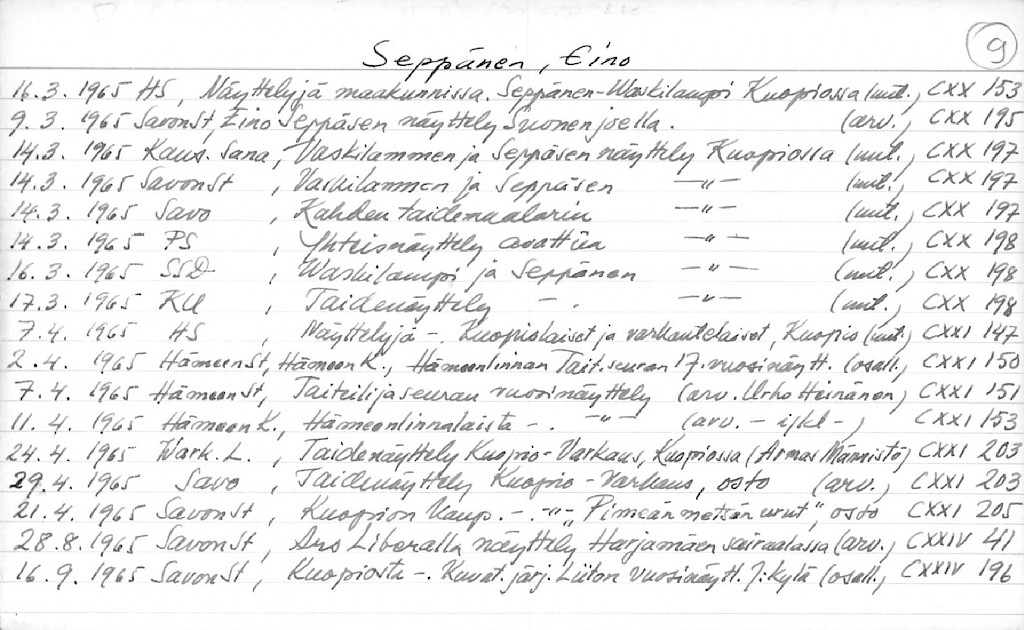 9
Seppänen, Eino
16.3. 1965 HS, Näyttelyjä maakunnissa. Seppänen-Waskilampi Kuopiossa (mut., CXX 153
9.3. 1965 SavonSt, Eino Seppäsen näyttely Suonenjoella. (arv., CXX 195
14.3. 1965 Kans. Sana, Vaskilammen ja Seppäsen näyttely Kuopiossa (mut., CXX 197
14.3. 1965 SavonSt , Vaskilammen ja Seppäsen —"— (mut., CXX 197
14.3. 1965 Savo , Kahden taidemaalarin —"— (mut., CXX 197
14.3. 1965 PS , Yhteisnäyttely avattiin —"— (mut., CXX 198
16.3. 1965 SSD , Waskilampi ja Seppänen —"— (mut., CXX 198
17.3. 1965 KU , Taidenäyttely —. —"— (mut., CXX 198
7.4. 1965 HS , Näyttelyjä —. Kuopiolaiset ja varkautelaiset, Kuopio (mut., CXXI 147
2.4. 1965 HämeenSt, Hämeen K., Hämeenlinnan Tait.seuran 17. vuosinäytt. (osall., CXXI 150
7.4. 1965 HämeenSt, Taiteilijaseuran vuosinäyttely (arv. Urho Heinänen, CXXI 151
11.4. 1965 Hämeen K., Hämeenlinnalaista —. —"— (arv. — ijkl —, CXXI 153
24.4. 1965 Wark. L. , Taidenäyttely Kuopio-Varkaus, Kuopiossa (Armas Männistö, CXXI 203
29.4. 1965 Savo , Taidenäyttely Kuopio - Varkaus, osto (arv., CXXI 203
21.4. 1965 SavonSt , Kuopion Kaup. —. —"— „Pimeän metsän urut", osto CXXI 205
28.8. 1965 SavonSt , Ars Liberalla näyttely Harjamäen sairaalassa (arv., CXXIV 41
16.9. 1965 SavonSt , Kuopiosta —. Kuvat. järj. Liiton vuosinäytt. J:kylä (osall., CXXIV 196